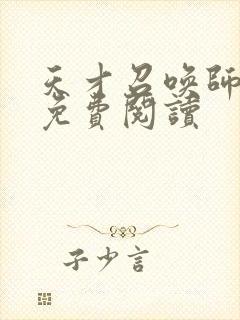 天才召喚師
免費閱讀
子少言